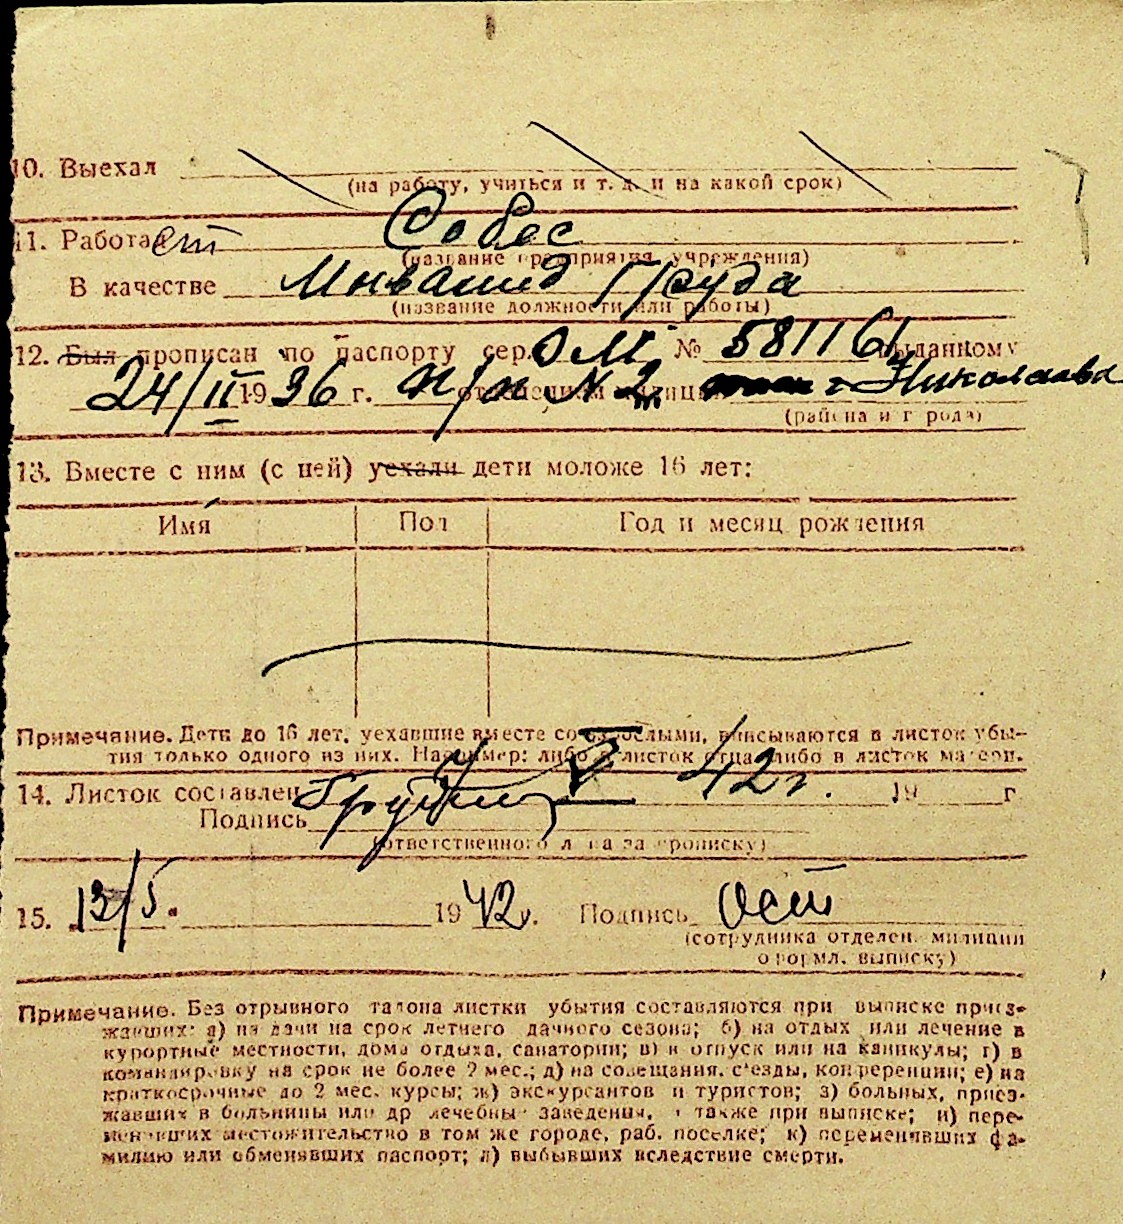 10. Выехал
(на работу, учиться и т. д. и на какой срок)
11. Работает Собес
(название предприятия, учреждения)
В качестве Инвалид Труда
(название должности или работы)
12. Был прописан по паспорту сер. ОМ № 581161 выданному
24/II 1936 г. отделением милиции г. Николаева
(района и города)
13. Вместе с ним (с ней) уехали дети моложе 16 лет:
Имя Пол Год и месяц рождения
Примечание. Дети до 16 лет, уехавшие вместе со взрослыми, вписываются в листок убы-
тия только одного из них. Например: либо в листок отца, либо в листок матери.
14. Листок составлен V 42 г. 19 г
Подпись
(ответственного лица за прописку)
15. 13/5. 1942 г. Подпись
(сотрудника отделен. милиции
оформл. выписку)
Примечание. Без отрывного талона листки убытия составляются при выписке приез-
жавших: а) на дачи на срок летнего дачного сезона; б) на отдых или лечение в
курортные местности, дома отдыха, санатории; в) в отпуск или на каникулы; г) в
командировку на срок не более 2 мес.; д) на совещания, с'езды, конференции; е) на
краткосрочные до 2 мес. курсы; ж) экскурсантов и туристов; з) больных, приез-
жавших в больницы или др лечебные заведения, а также при выписке; и) пере-
менивших местожительство в том же городе, раб. поселке; к) переменивших фа-
милию или обменявших паспорт; л) выбывших вследствие смерти.